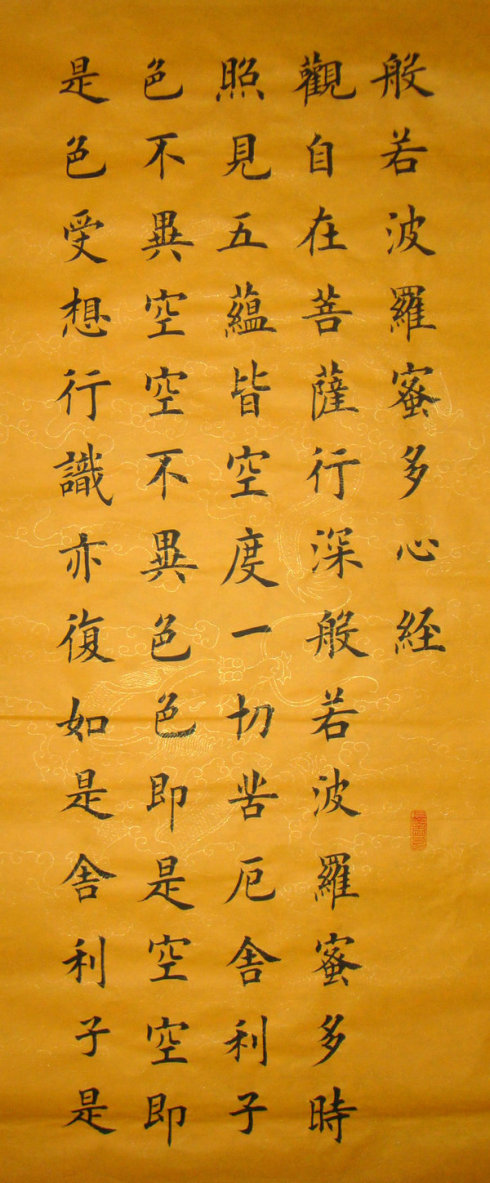 般若波羅蜜多心経
觀自在菩薩行深般若波羅蜜多時
照見五蘊皆空度一切苦厄舎利子
色不異空空不異色色即是空空即
是色受想行識亦復如是舎利子是